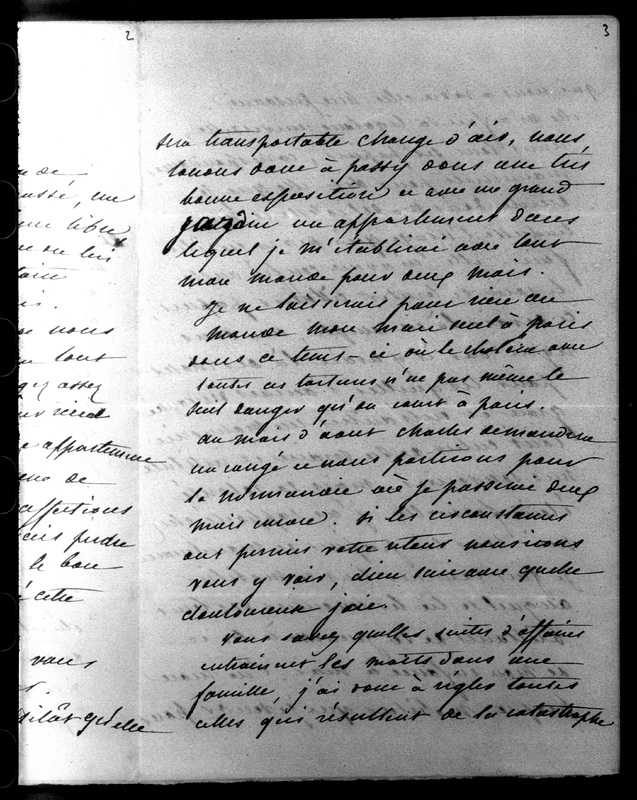 2
3
sera transportable change d'air, nous
louons donc à passy dans une très
bonne exposition et avec un grand
jardin un appartement dans
lequel je m'établirai avec tout
mon monde pour deux mois.
Je ne laisserais pour rien au
monde mon mari seul à paris
dans ce tems-ci où le choléra avec
toutes ses tortures n'est pas même le
seul danger qu'on court à paris.
au mois d'aout charles demandera
un congé et nous partirons pour
la normandie où je passerai deux
mois encore. si les circonstances
ont permis votre retour nous irons
vous y voir, dieu sait avec quelle
douloureuse joie.
Vous savez quelles suites d'affaires
entrainent les morts dans une
famille, j'ai donc à régler toutes
celles qui résultent de la catastrophe
de
une
libre
nous
tout
assez
appartement
de
affections
perdre
le bon
cette
vous
plutôt qu'elle